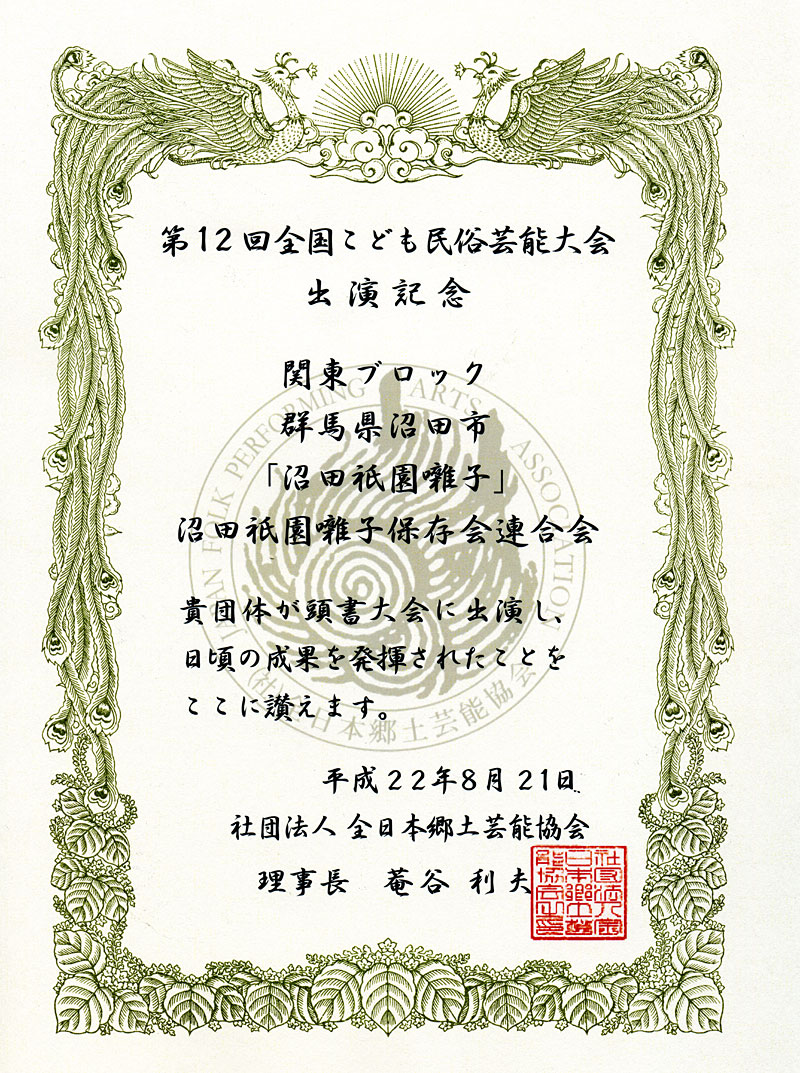 第12回全国こども民俗芸能大会
出演記念
関東ブロック
群馬県沼田市
「沼田祇園囃子」
沼田祇園囃子保存会連合会
貴団体が頭書大会に出演し、
日頃の成果を発揮されたことを
ここに讃えます。
平成22年8月21日
社団法人 全日本郷土芸能協会
理事長 菴谷 利夫
JAPAN FOLK PERFORMING ARTS ASSOCIATION
(社)全日本郷土芸能協会